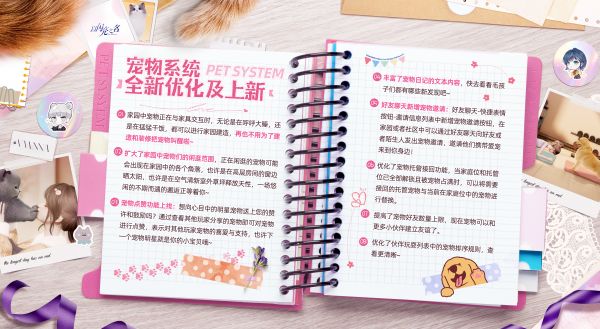 以闪亮之名
PET SYSTEM
宠物系统 PET SYSTEM
全新优化及上新
01 家园中宠物正在与家具交互时,无论是在呼呼大睡,还
是在猛猛干饭,都可以进行家园建造,再也不用为了建
造和装修把宠物叫醒啦~
02 扩大了家园中宠物们的闲逛范围,正在闲逛的宠物可能
会出现在家园中的各个角落,也许是在高层房间的窗边
晒太阳,也许是在空气清新室外草坪释放天性,一场悠
闲的不期而遇的邂逅正等着你~
03 宠物点赞功能上线:想向心目中的明星宠物送上您的赞
许和鼓励吗?通过查看其他玩家分享的宠物即可对宠物
进行点赞,表示对其他玩家宠物的喜爱与支持,也许下
一个宠物明星就是你的小宝贝噢~
04 丰富了宠物日记的文本内容,快去看看毛孩
子们都有哪些新发现吧~
05 好友聊天新增宠物邀请:好友聊天-快捷表情
按钮-邀请信息列表中新增宠物邀请按钮,在
家园或者社区中可以通过好友聊天向好友或
者陌生人发出宠物邀请,邀请他们携带爱宠
来到你身边!
06 优化了宠物托管接回功能,当家庭位和托管
位已全部解锁且被宠物占满时,可以将需要
接回的托管宠物与当前在家庭位中的宠物进
行替换。
07 提高了宠物好友数量上限,现在宠物可以和
更多小伙伴建立友谊了。
08 优化了伙伴玩耍列表中的宠物排序规则,查
看更清晰~